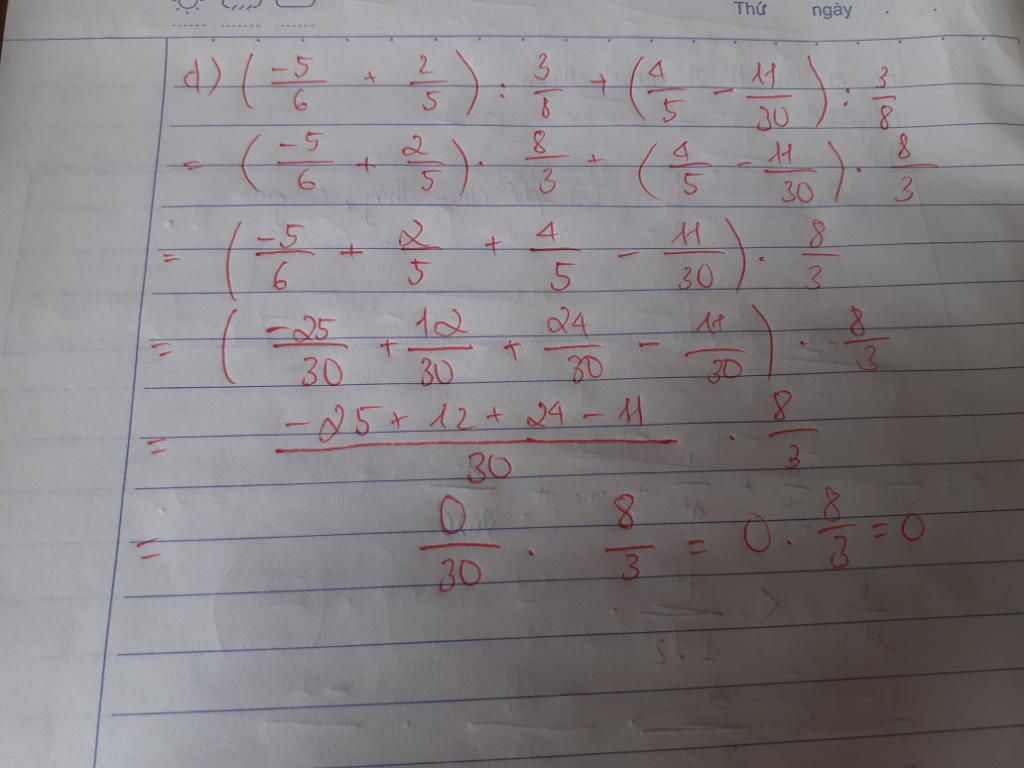 Thứ ngày . .
d) (-5/6 + 2/5) : 3/8 + (4/5 - 11/30) : 3/8
= (-5/6 + 2/5) . 8/3 + (4/5 - 11/30) . 8/3
= (-5/6 + 2/5 + 4/5 - 11/30) . 8/3
= (-25/30 + 12/30 + 24/30 - 11/30) . 8/3
= (-25 + 12 + 24 - 11)/30 . 8/3
= 0/30 . 8/3 = 0 . 8/3 = 0